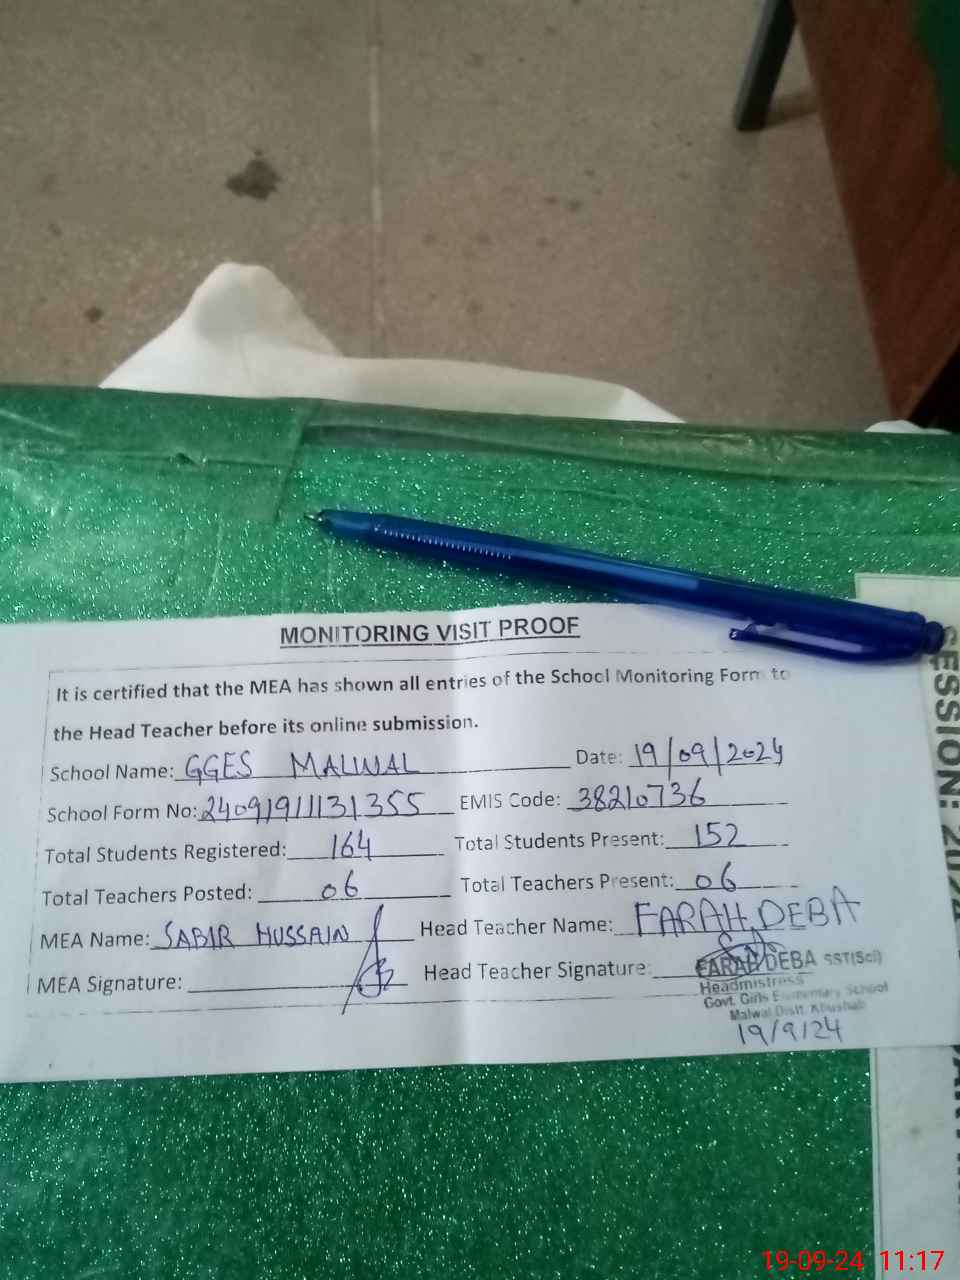 MONITORING VISIT PROOF
It is certified that the MEA has shown all entries of the School Monitoring Form to
the Head Teacher before its online submission.
School Name: GGES MALWAL Date: 19/09/2024
School Form No: 24091911131355 EMIS Code: 38210736
Total Students Registered: 164 Total Students Present: 152
Total Teachers Posted: 06 Total Teachers Present: 06
MEA Name: SABIR HUSSAIN Head Teacher Name: FARAH DEBA
MEA Signature: Head Teacher Signature:
FARAH DEBA SST(Sci)
Headmistress
Govt. Girls Elementary School
Malwal Distt. Khushab
19/9/24
SESSION: 202
19-09-24 11:17